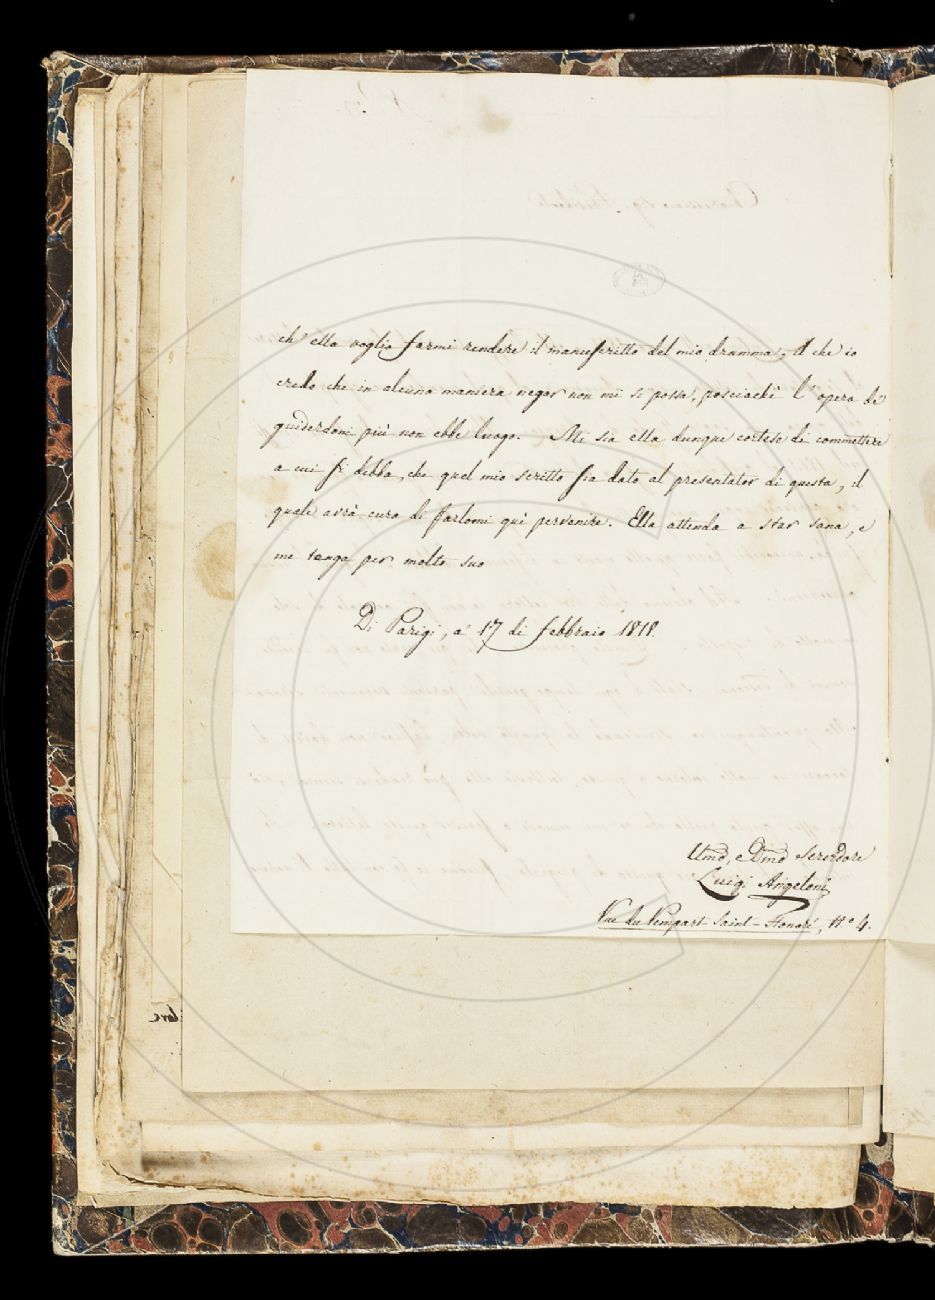 ch' ella voglia farmi rendere il manuscritto del mio dramma, il che io
credo che in alcuna maniera negar non mi si possa, posciachè l' opera de'
guiderdoni più non ebbe luogo. Mi sia ella dunque cortese di commettere
a cui si debba, che quel mio scritto sia dato al presentator di questa, il
quale avrà cura di farlomi quì pervenire. Ella attenda a star sana, e
me tenga per molto suo
Di Parigi, a' 17 di febbraio 1818.
Umo, e Dmo Servidore
Luigi Angeloni
Rue du Rempart-Saint-Honoré, N.º 4.